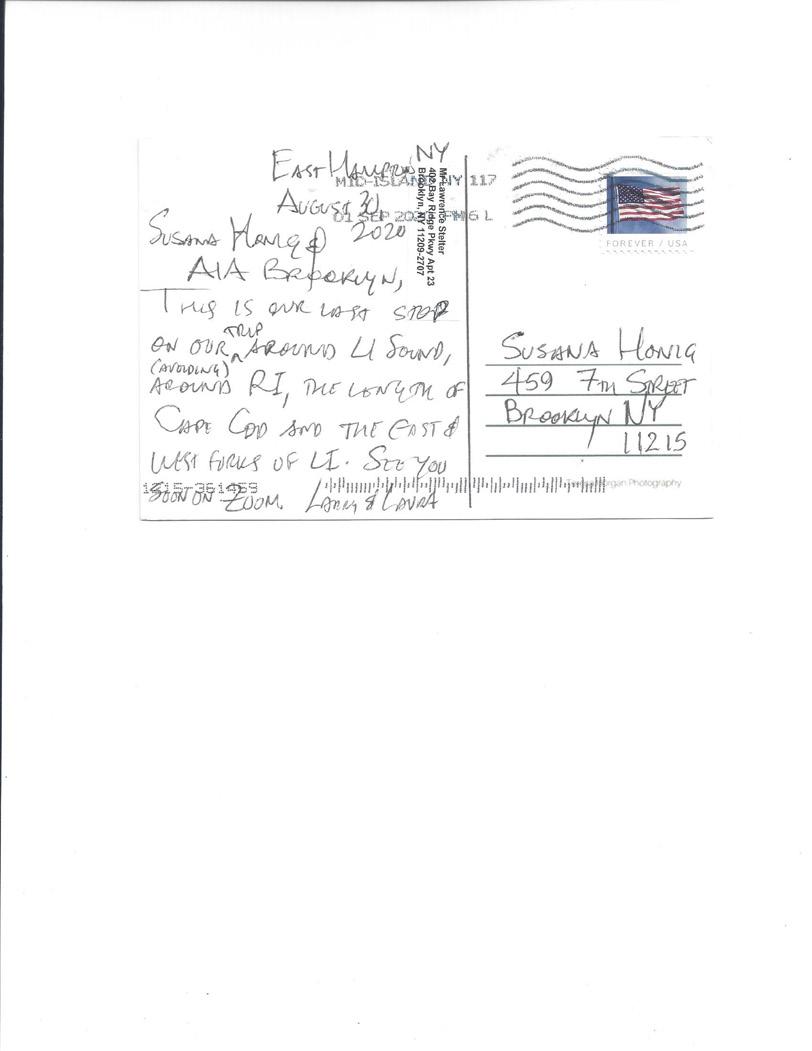 East Hampton NY
August 30,
2020
Susana Honig &
AIA Brooklyn,
This is our last stop
on our trip around LI Sound,
(avoiding)
around RI, the length of
Cape Cod and the East &
West Forks of LI. See you
soon on Zoom. Larry & Laura
MID-ISLAND NY 117
01 SEP 2020 PM 6 L
Mr Lawrence Stelter
402 Bay Ridge Pkwy Apt 23
Brooklyn, NY 11209-2707
FOREVER / USA
Susana Honig
459 7th Street
Brooklyn NY
11215
Morgan Photography